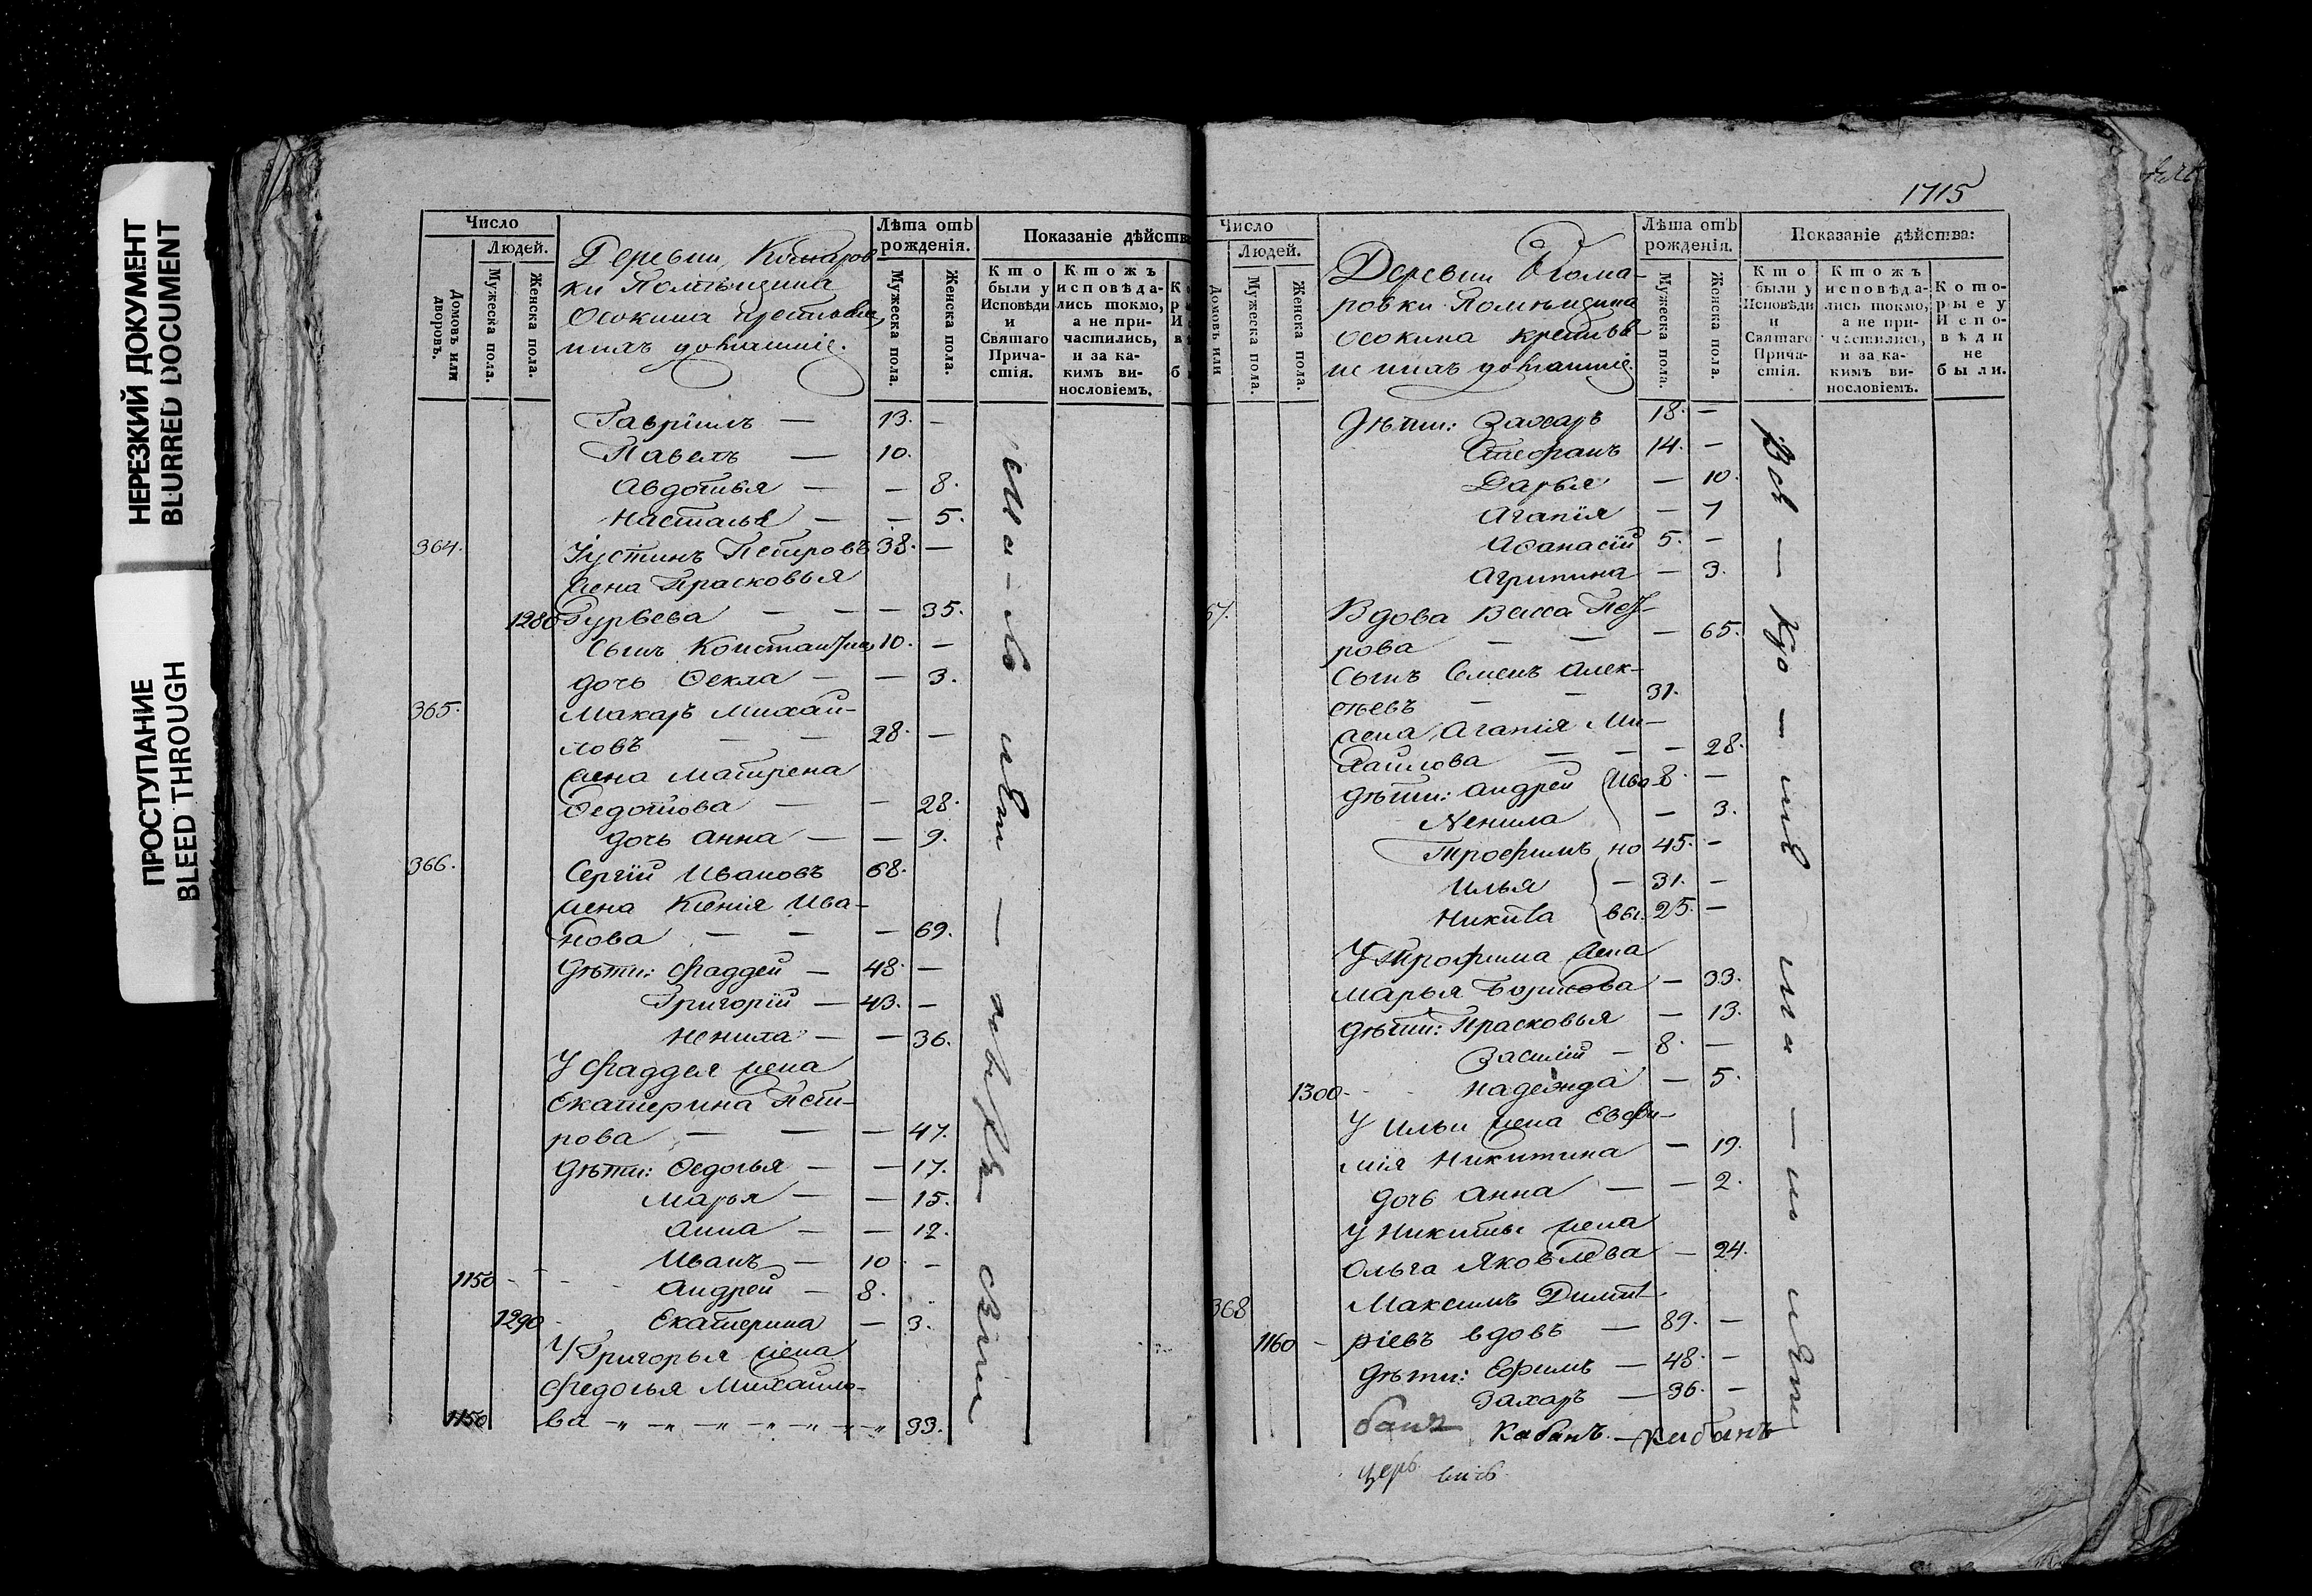 НЕРЕЗКИЙ ДОКУМЕНТ
BLURRED DOCUMENT
ПРОСТУПАНИЕ
BLEED THROUGH
Число
Людей.
Домовъ или дворовъ.
Мужеска пола.
Женска пола.
Деревни Комаров
ки Помѣщика
Осокина крестьяне,
нихъ домашніе.
Лѣта отъ рожденія.
Мужеска пола.
Женска пола.
Показаніе дѣйства
Кто были у Исповѣди и Святаго Причастія.
Ктожъ исповѣдались токмо, а не причастились, и за какимъ винословіемъ.
Гавріилъ — 13. —
Павелъ — 10.
Авдотья — — 8.
Настасья — — 5.
364. Іустинъ Петровъ 38. —
жена Прасковья
1280 Гурьева — — — 35.
сынъ Константинъ 10. —
дочь Ѳекла — — 3.
365. Макаръ Михай-
ловъ — — 28. —
жена Матрена
Ѳедотова — — 28.
дочь Анна — — 9.
366. Сергій Ивановъ 68.
жена Ксенія Ива-
нова — — — 69.
дѣти: Фаддей — 48. —
Григорій — 43. —
Ненила — — 36.
У Фаддея жена
Екатерина Пет-
рова — — — 47.
дѣти: Ѳедосья — — 17.
Марья — — 15.
Анна — — 12.
Иванъ — 10 —
1150 - - - - Андрей — 8.
1290 - Екатерина — 3.
У Григорья жена
Федосья Михайло-
1150 ва 33.
1715
Число
Людей.
Домовъ или
Мужеска пола.
Женска пола.
Деревни Кома-
ровки Помѣщика
Осокина крестья
не ихъ домашніе.
Лѣта отъ рожденія.
Мужеска пола.
Женска пола.
Показаніе дѣйства:
Кто были у Исповѣди и Святаго Причастія.
Ктожъ исповѣдались токмо, а не причастились, и за какимъ винословіемъ.
Которые у Исповѣди не были.
Дѣти: Захаръ 18. —
Стефанъ 14. —
Дарья — 10.
Агапія — 7
Аѳанасій 5. —
Агрипина — 3.
67. Вдова Васса Пет-
рова — — — 65.
Сынъ Семенъ Алек-
сѣевъ — 31.
жена Агапія Ми-
хайлова — — — 28.
дѣти: Андрей Ива 8. —
Ненила — 3.
Трофимъ но 45. —
Илья — 31. —
Никита вы. 25. —
У Трофима жена
Марья Борисова — 33.
дѣти: Прасковья — 13.
Василій — 8. —
1300 - Надежда — 5.
У Ильи жена Евфи-
мія Никитина — 19.
дочь Анна — — 2.
У Никиты жена
Ольга Яковлева — 24.
368 Максимъ Димит-
1160 - ріевъ вдовъ — 89. —
дѣти: Ефимъ — 48. —
Захаръ — 36. —
Кабанъ. — Кабанъ